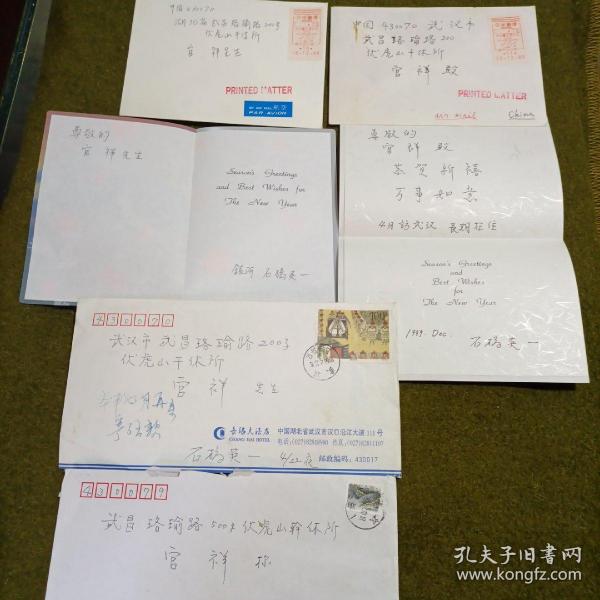 中国 430070
湖北省武昌珞瑜路200号
伏虎山干休所
官 祥先生
PRINTED MATTER
PAR AVION
中国 430070 武汉市
武昌珞瑜路200
伏虎山干休所
官 祥 殿
PRINTED MATTER
air mail
China
尊敬的
官 祥 先生
Season's Greetings
and Best Wishes for
The New Year
石橋英一
尊敬的
官 祥 殿
恭贺新禧
万事如意
4月访武汉
Season's Greetings
and
Best Wishes
for
The New Year
1999 Dec.
石橋英一
430070
武汉市武昌珞瑜路200号
伏虎山干休所
官 祥 先生
长海大酒店
CHANG HAI HOTEL
中国湖北省武汉市汉口沿江大道118号
邮政编码：430017
石橋英一 4/22夜
430079
武昌珞瑜路500号伏虎山幹休所
官 祥 你
孔夫子旧书网
www.kongfz.com